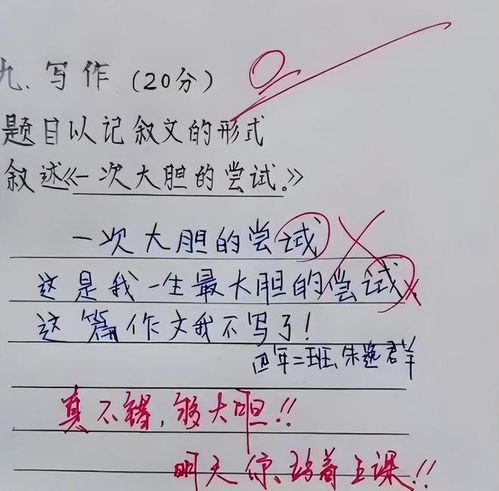 九、写作（20分）
题目以记叙文的形式
叙述《一次大胆的尝试。》
一次大胆的尝试
这是我一生最大胆的尝试，
这篇作文我不写了！
四年二班，朱逸群
真不错，够大胆！！
明天你站着上课！！